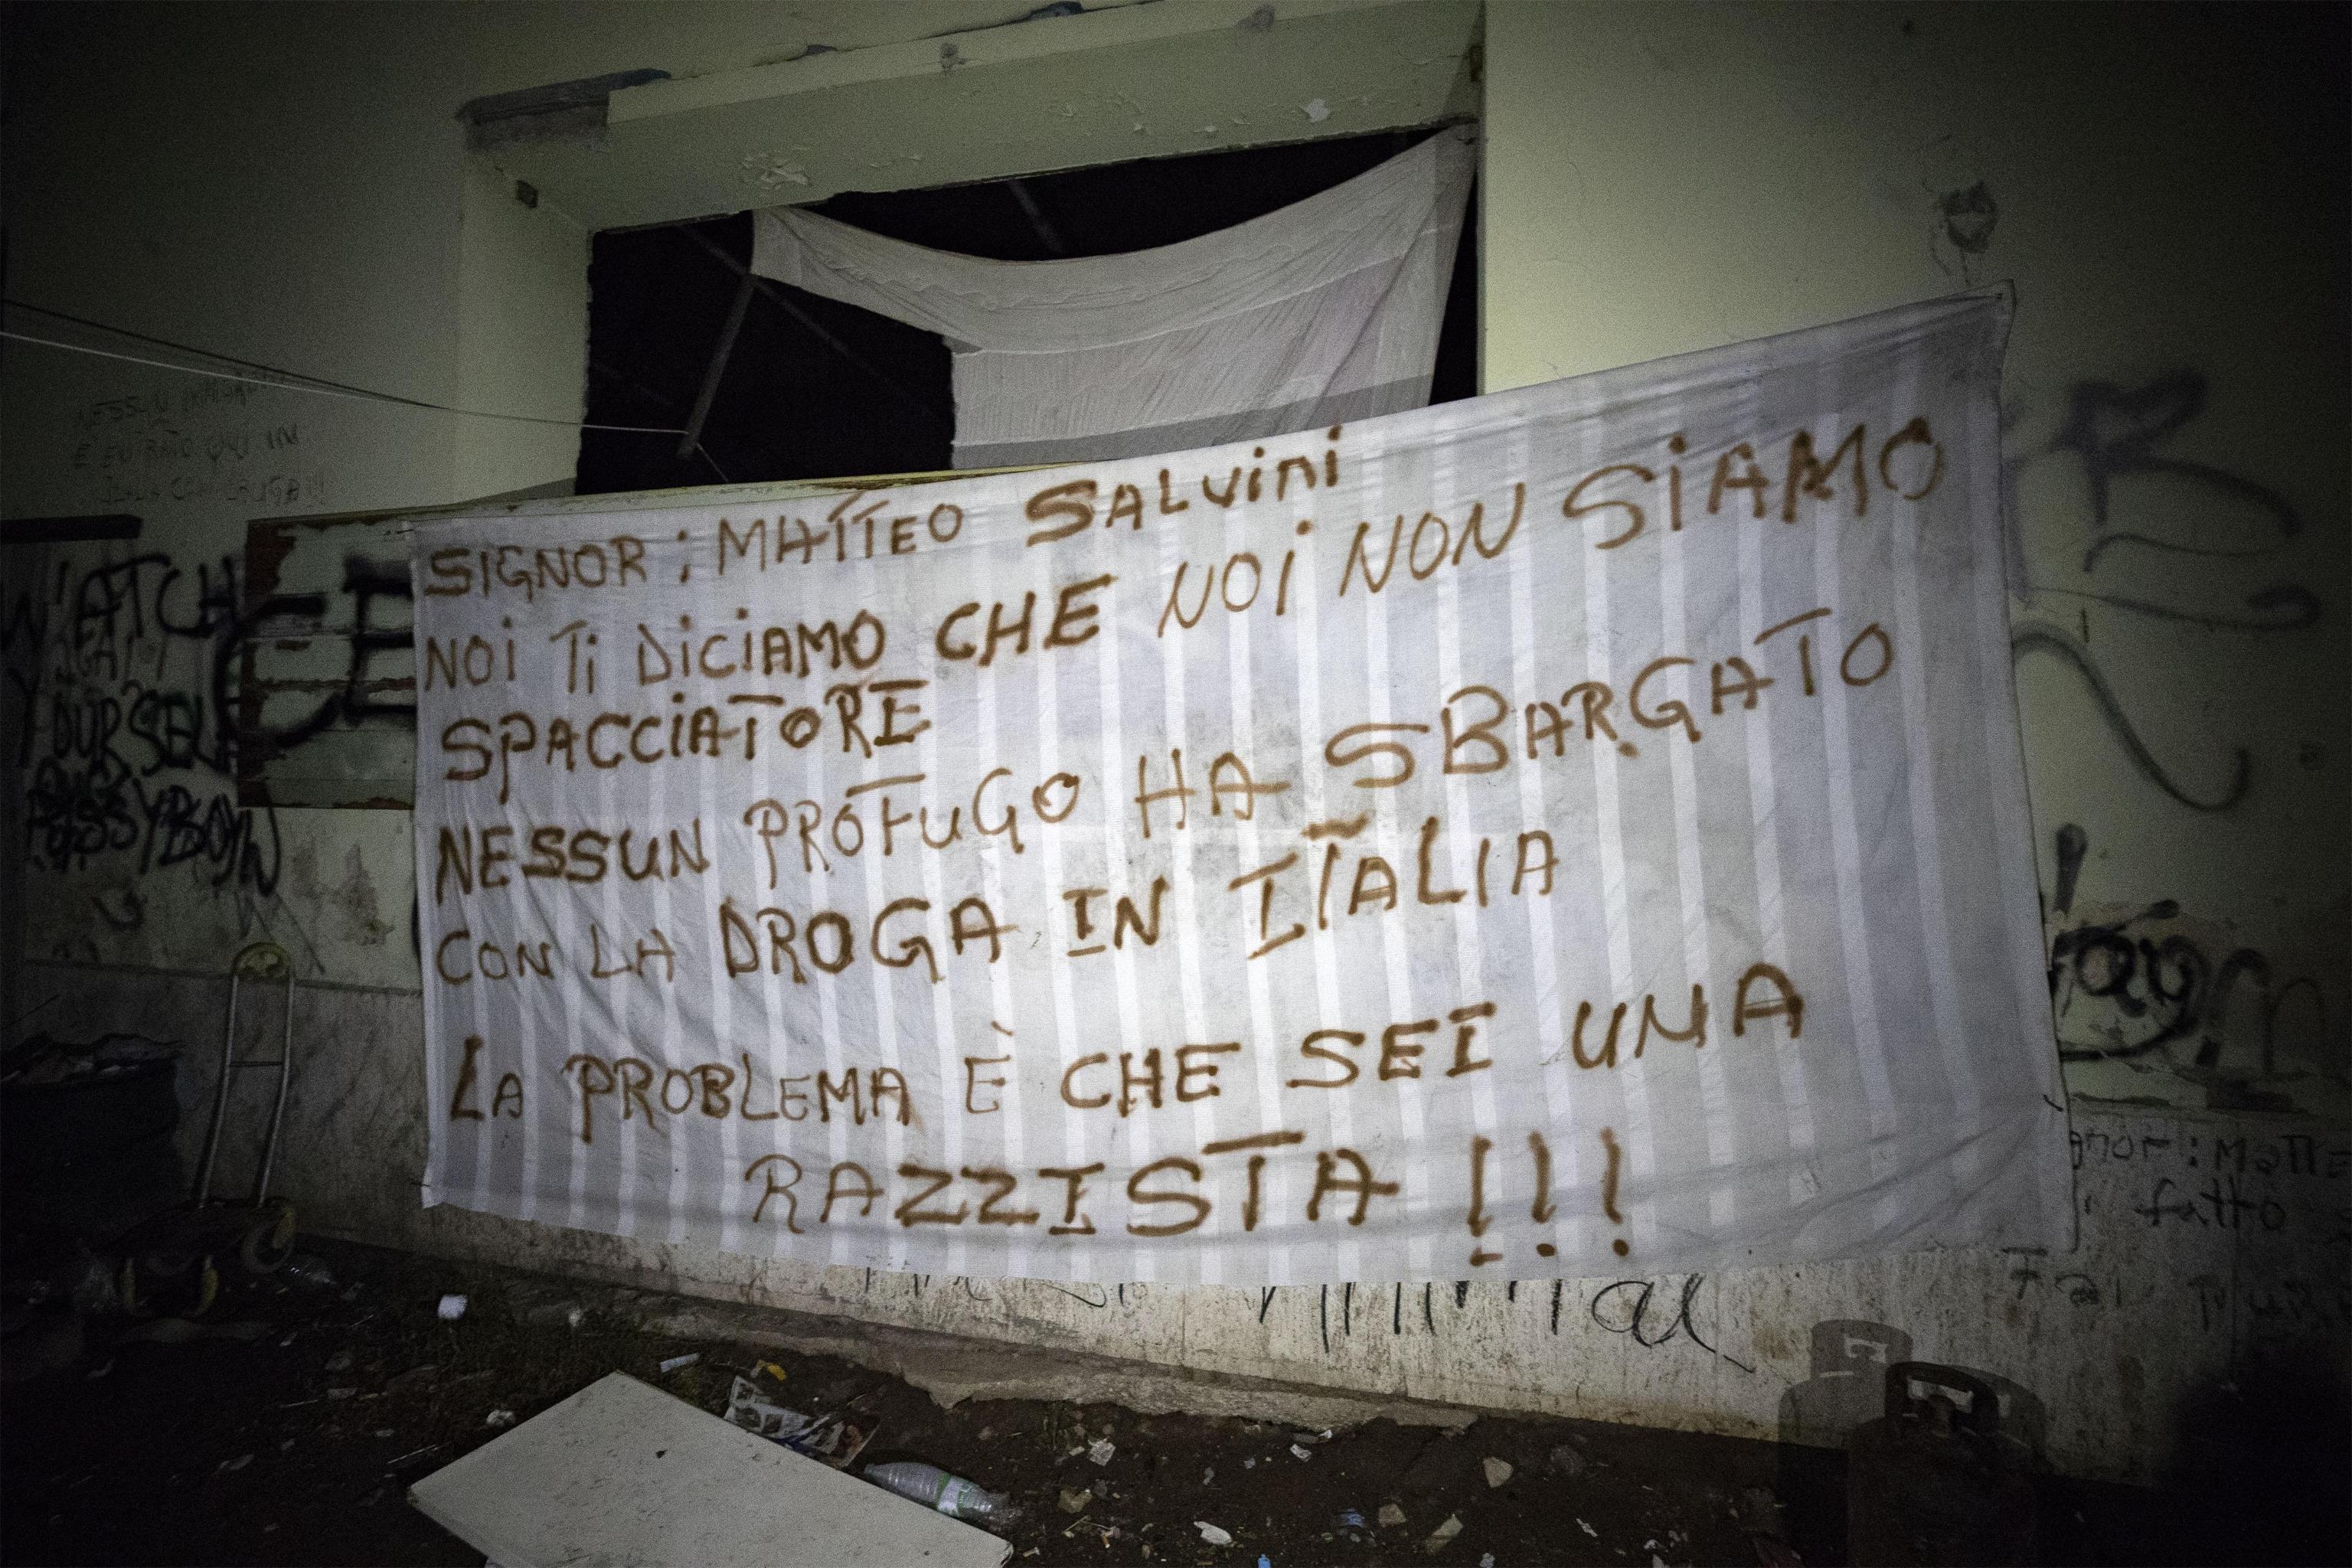 SIGNOR : MATTEO SALViNi
NOi Ti DiCiAMO CHE NOi NON SiAMO
SPACCiATORE
NESSUN PROFUGO HA SBARGATO
CON LA DROGA IN ITALIA
LA PROBLEMA È CHE SEI UNA
RAZZISTA !!!
E ENTRATO QUI IN
WATCH
YOUR SELF
PUSSYBOY
fatto